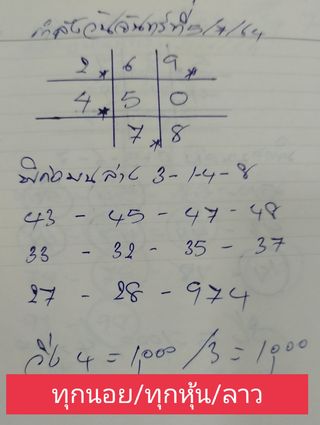 กำลังวันจันทร์ที่ 5/7/64
2. 6 9.
4. 5 0
7. 8
บน ล่าง 3-1-4-8
43 - 45 - 47 - 48
33 - 32 - 35 - 37
27 - 28 - 974
วิ่ง 4 = 1,000 / 3 = 1,000
ทุกนอย/ทุกหุ้น/ลาว